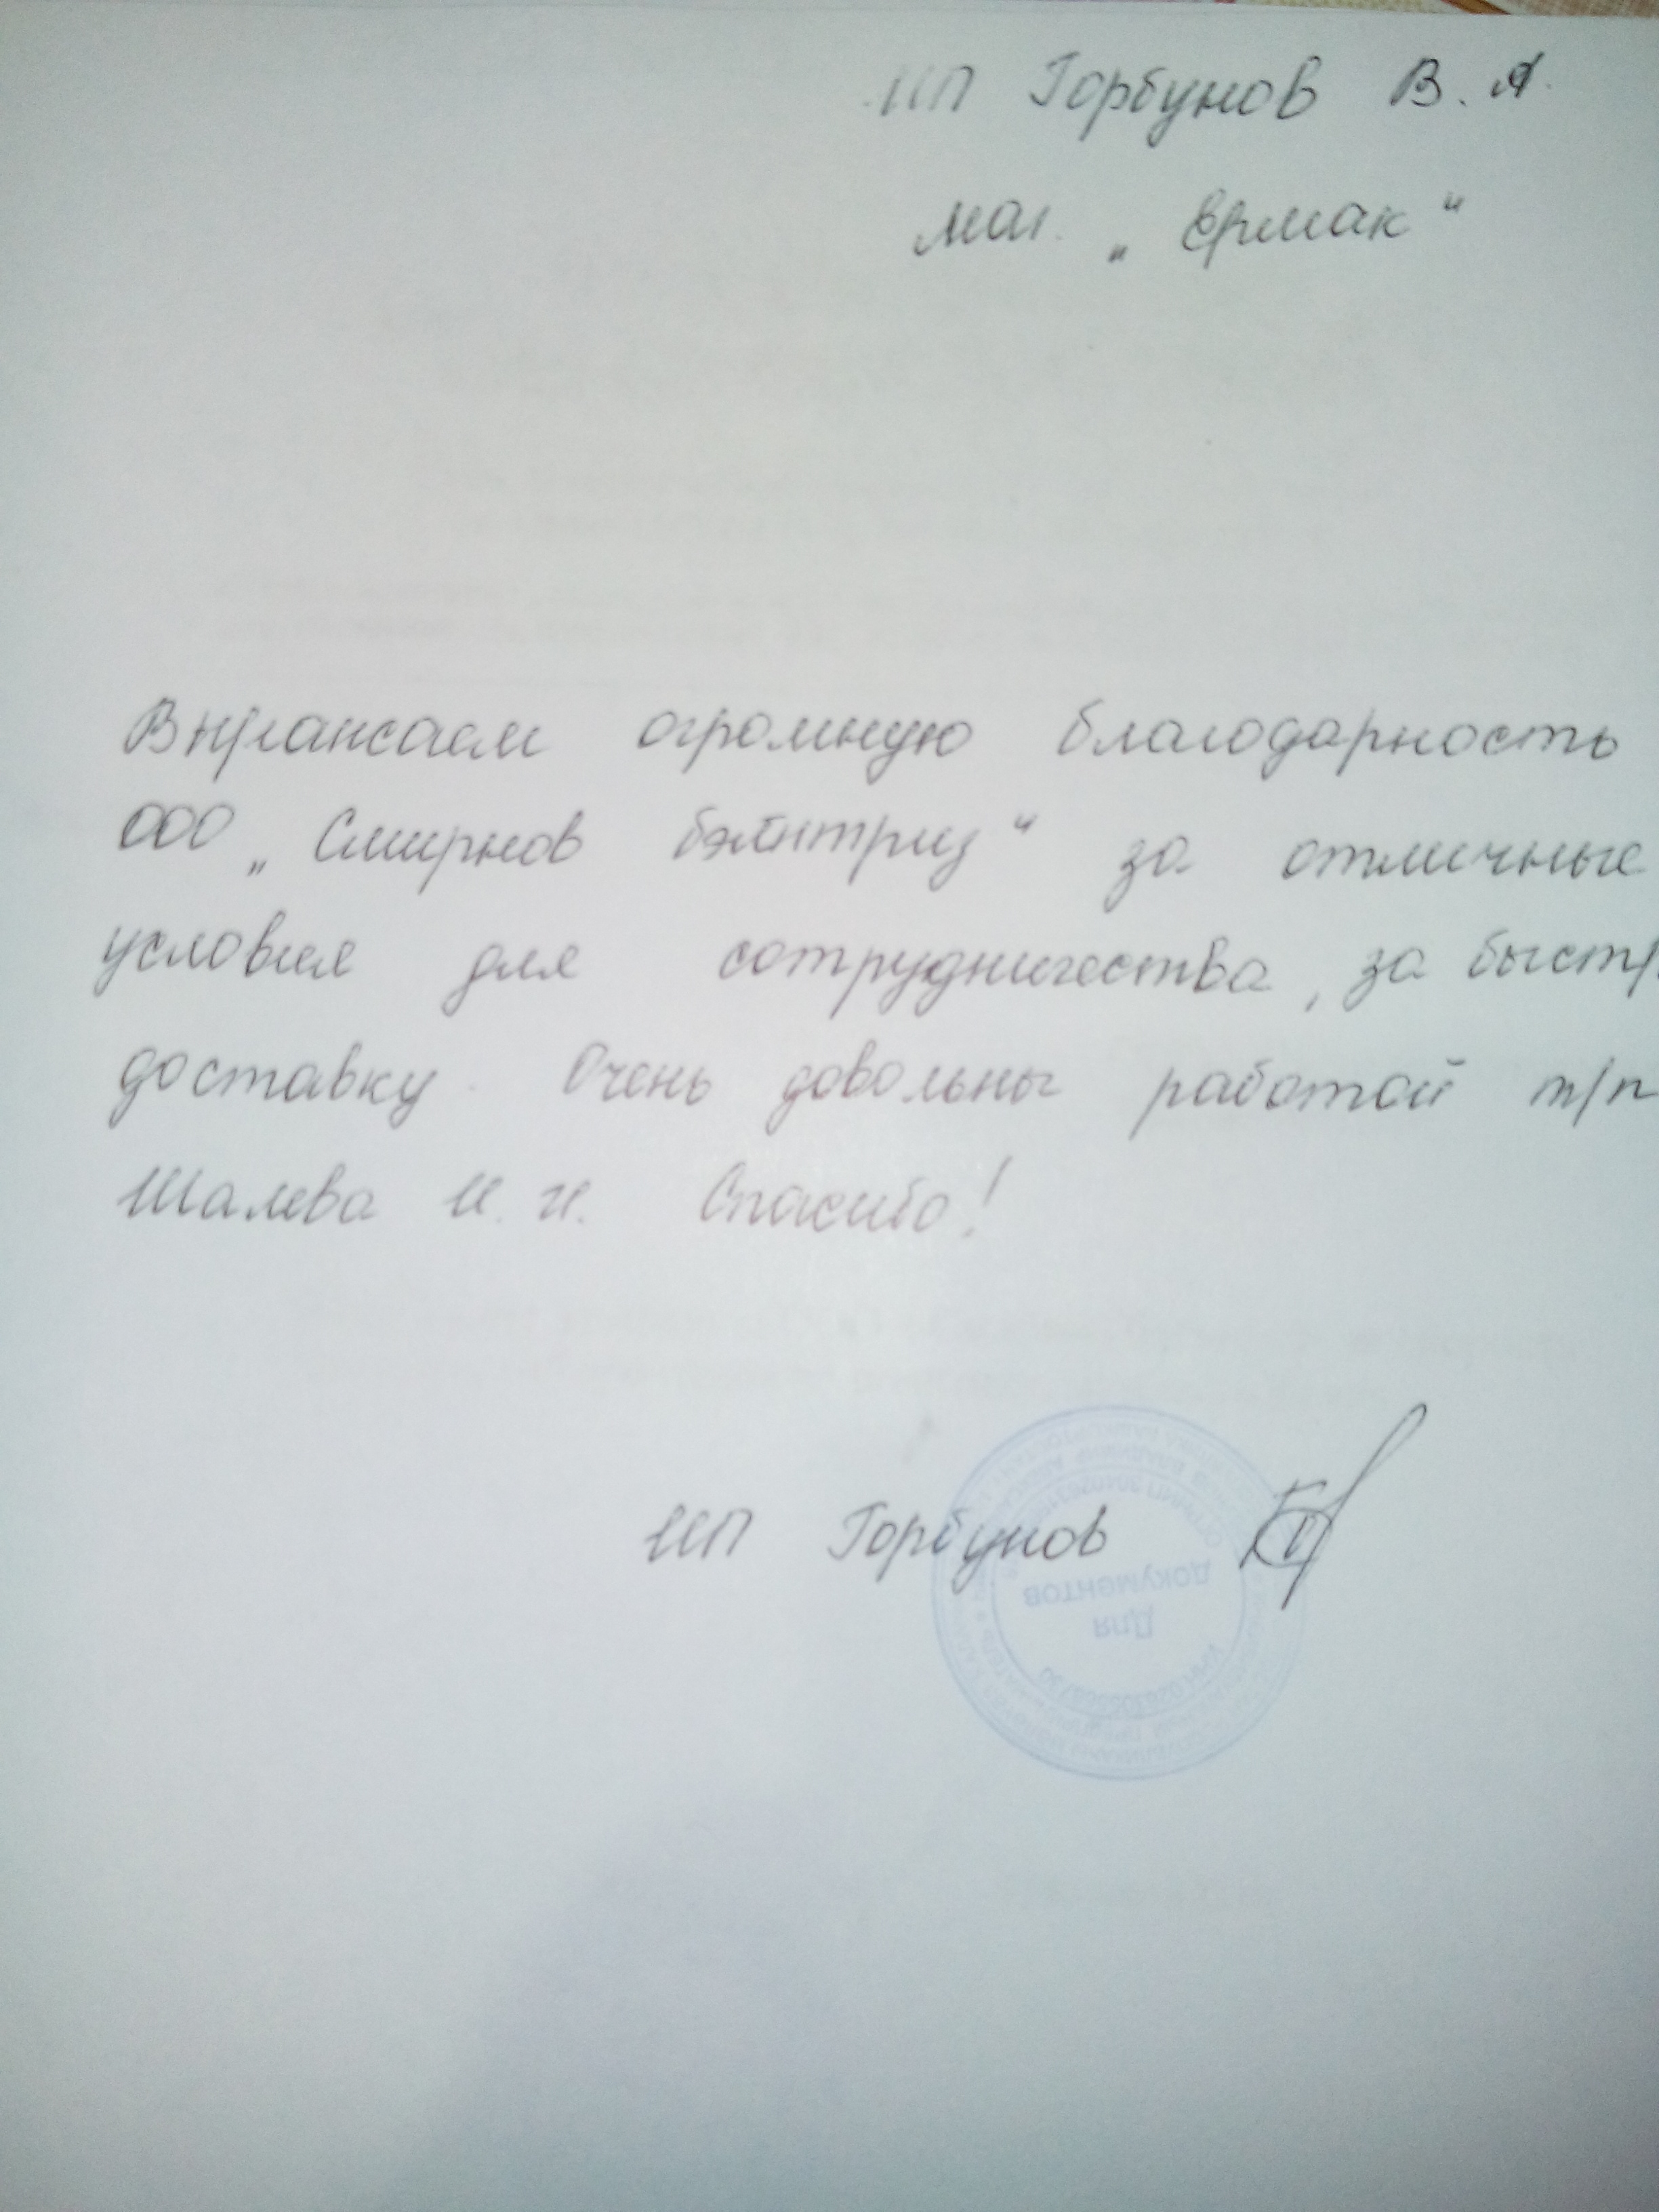 ИП Горбунов В. А.
маг. „Ермак“
Выражаем огромную благодарность
ООО „Смирнов бэттериз“ за отличные
условия для сотрудничества, за быстр
доставку. Очень довольны работой т/п
Шалева И. И. Спасибо!
ИП Горбунов
Для
документов